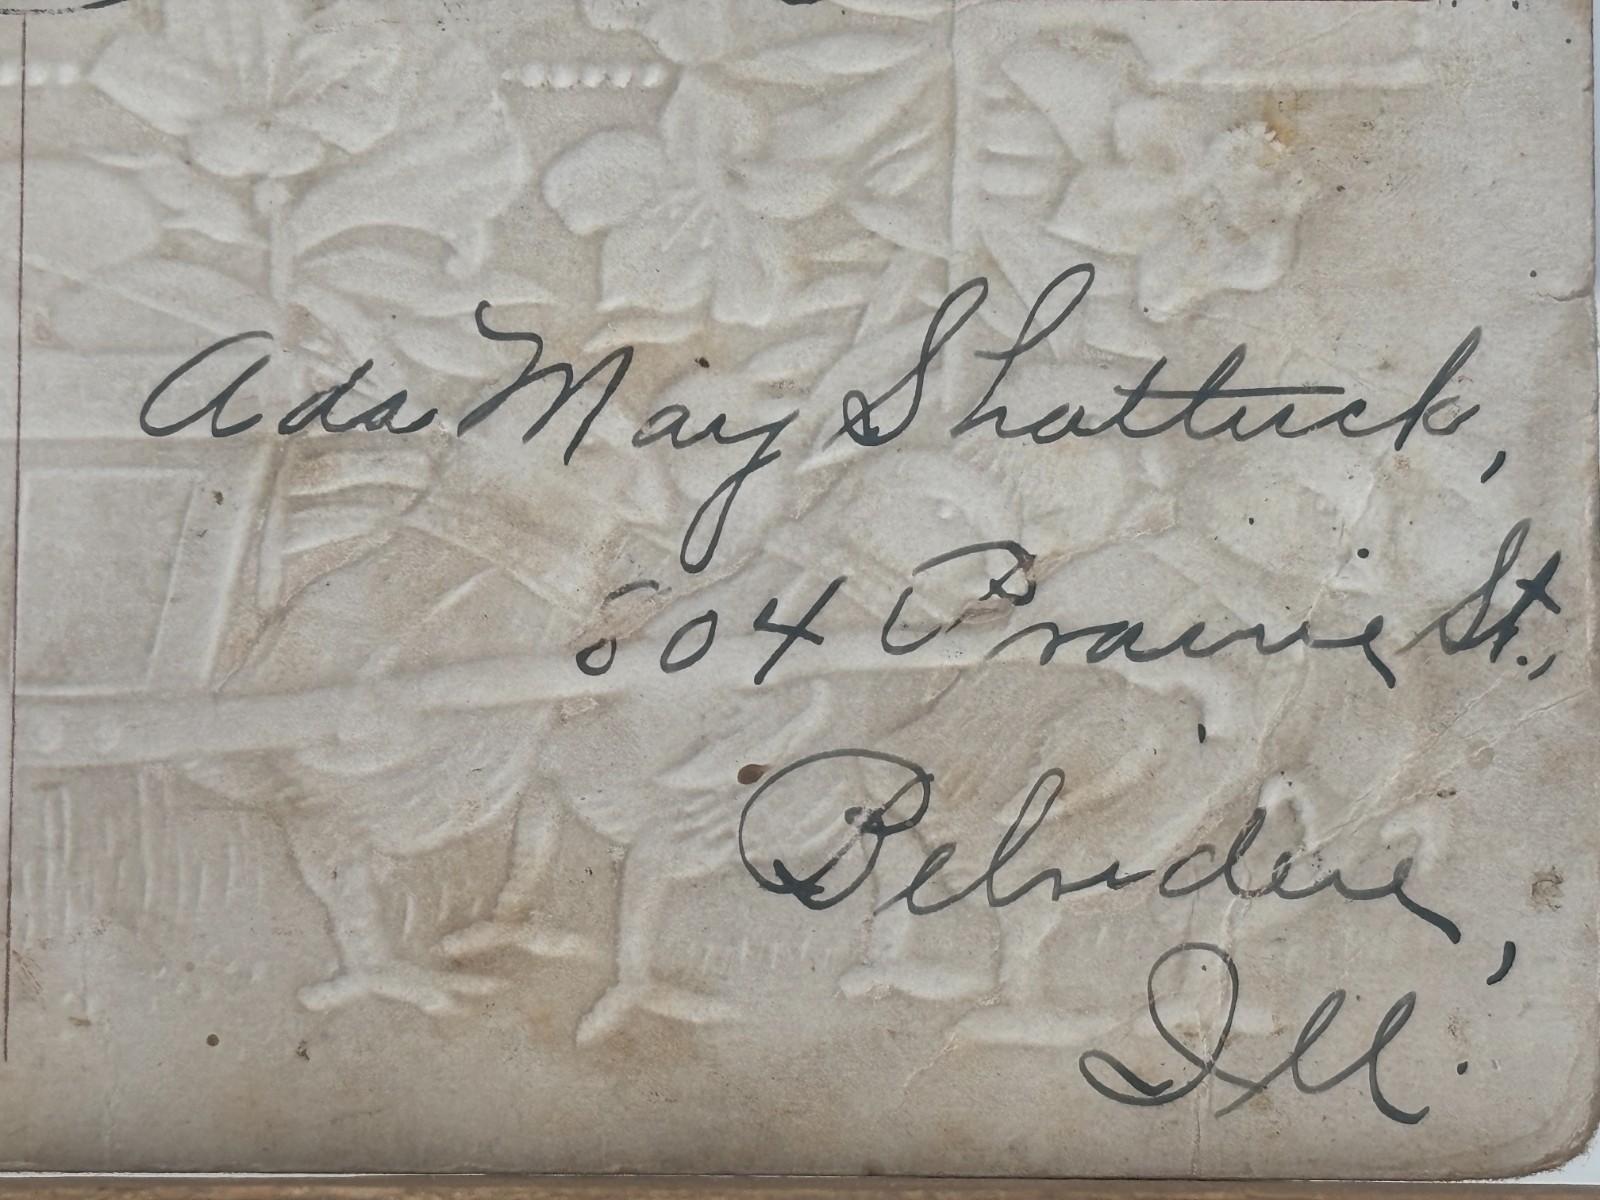 Ada May Shattuck,
804 Prairie St.,
Belvidere,
Ill.